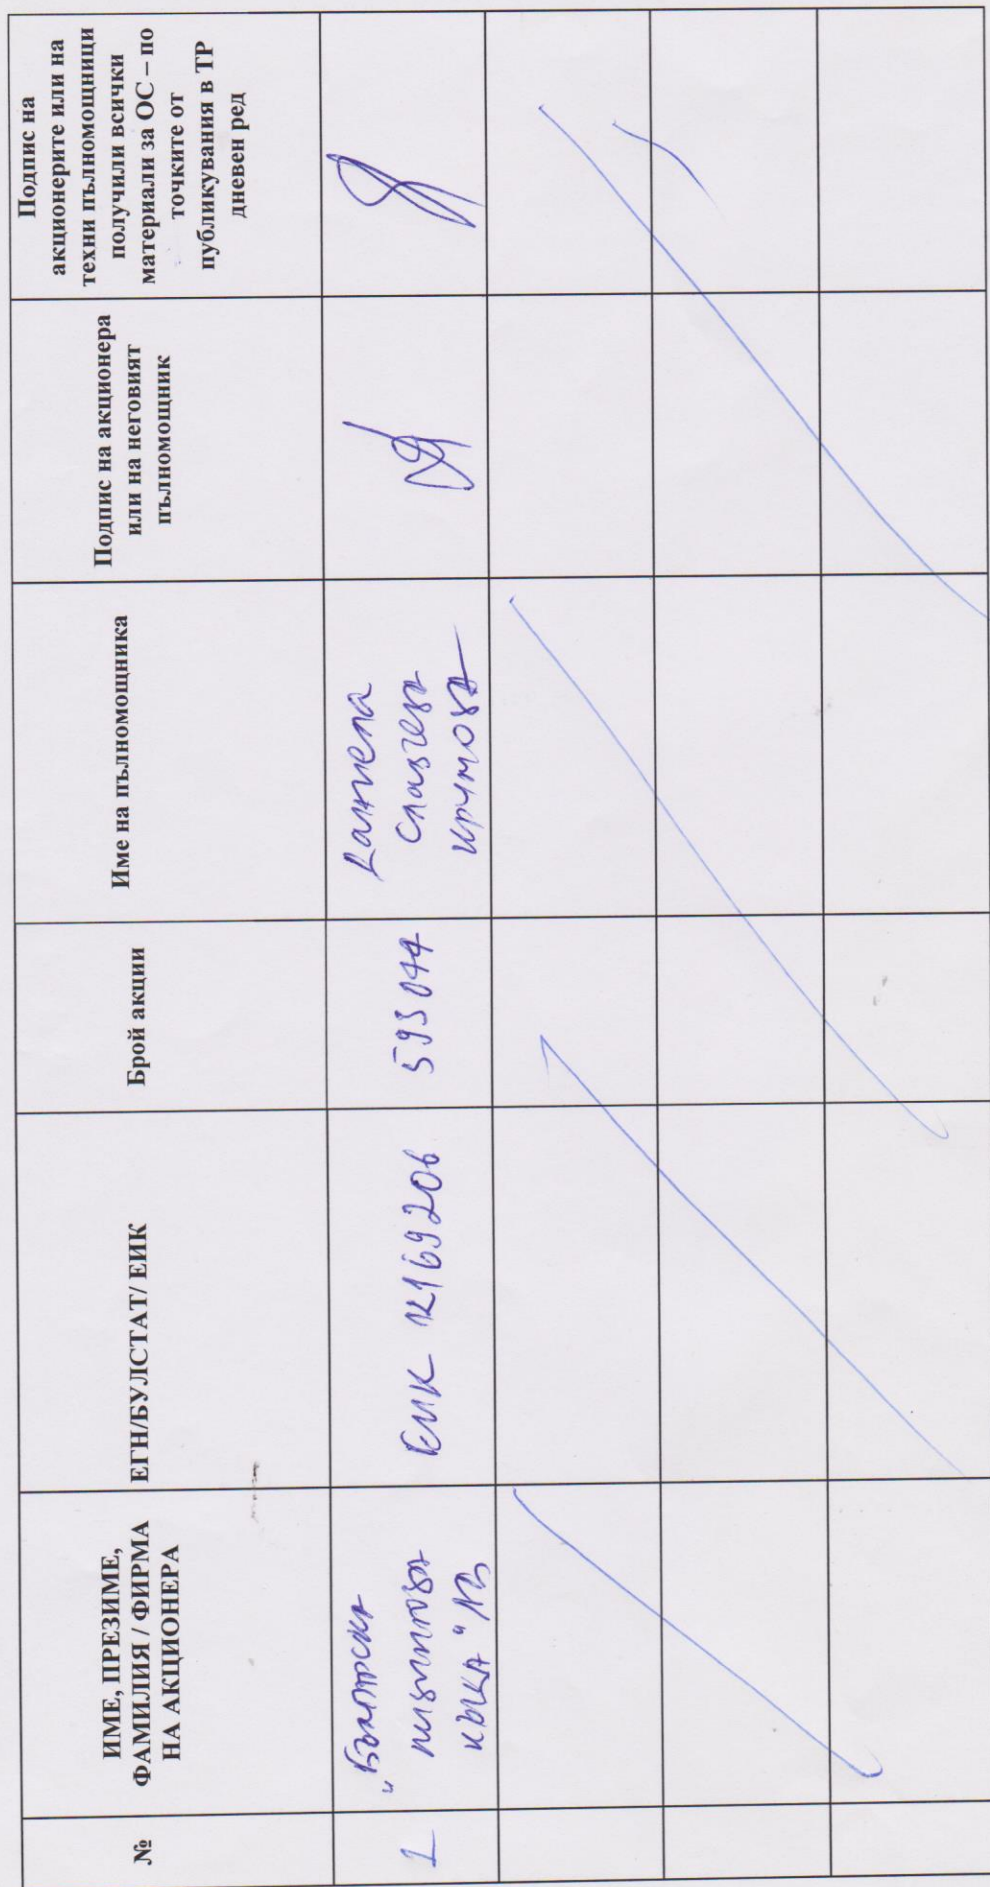 №
ИМЕ, ПРЕЗИМЕ,
ФАМИЛИЯ / ФИРМА
НА АКЦИОНЕРА
ЕГН/БУЛСТАТ/ ЕИК
Брой акции
Име на пълномощника
Подпис на акционера
или на неговият
пълномощник
Подпис на
акционерите или на
техни пълномощници
получили всички
материали за ОС – по
точките от
публикувания в ТР
дневен ред
1
"Българска
лизингова
къща"
ЕИК
593 044
Даниела
Крумова